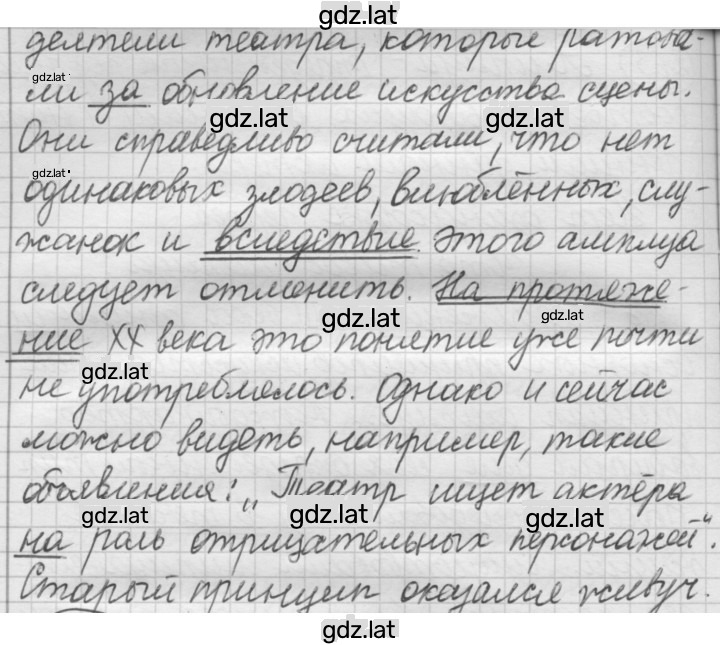 gdz.lat
деятели театра, которые ратова-
gdz.lat
ли за обновление искусства сцены.
gdz.lat gdz.lat
Они справедливо считали, что нет
gdz.lat
одинаковых злодеев, влюблённых, слу-
жанок и вследствие этого амплуа
следует отменить. На протяже-
gdz.lat gdz.lat
ние XX века это понятие уже почти
gdz.lat
не употреблялось. Однако и сейчас
можно видеть, например, такие
объявления: „Театр ищет актёра
gdz.lat gdz.lat gdz.lat
на роль отрицательных персонажей“.
Старый принцип оказался живуч.
gdz.lat